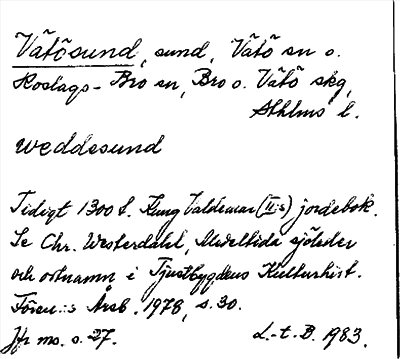 Vätösund, sund, Vätö sn o.
Roslags-Bro sn, Bro o. Vätö skg,
Sthlms l.
weddesund
Tidigt 1300 t. Kung Valdemar (II:s) jordebok.
Se Chr. Westerdahl, Medeltida sjöleder
och ortnamn i Tjustbygdens Kulturhist.
Fören.:s Årsb. 1978, s. 30.
Jfr ms. s. 27. L.-t. B. 1983.